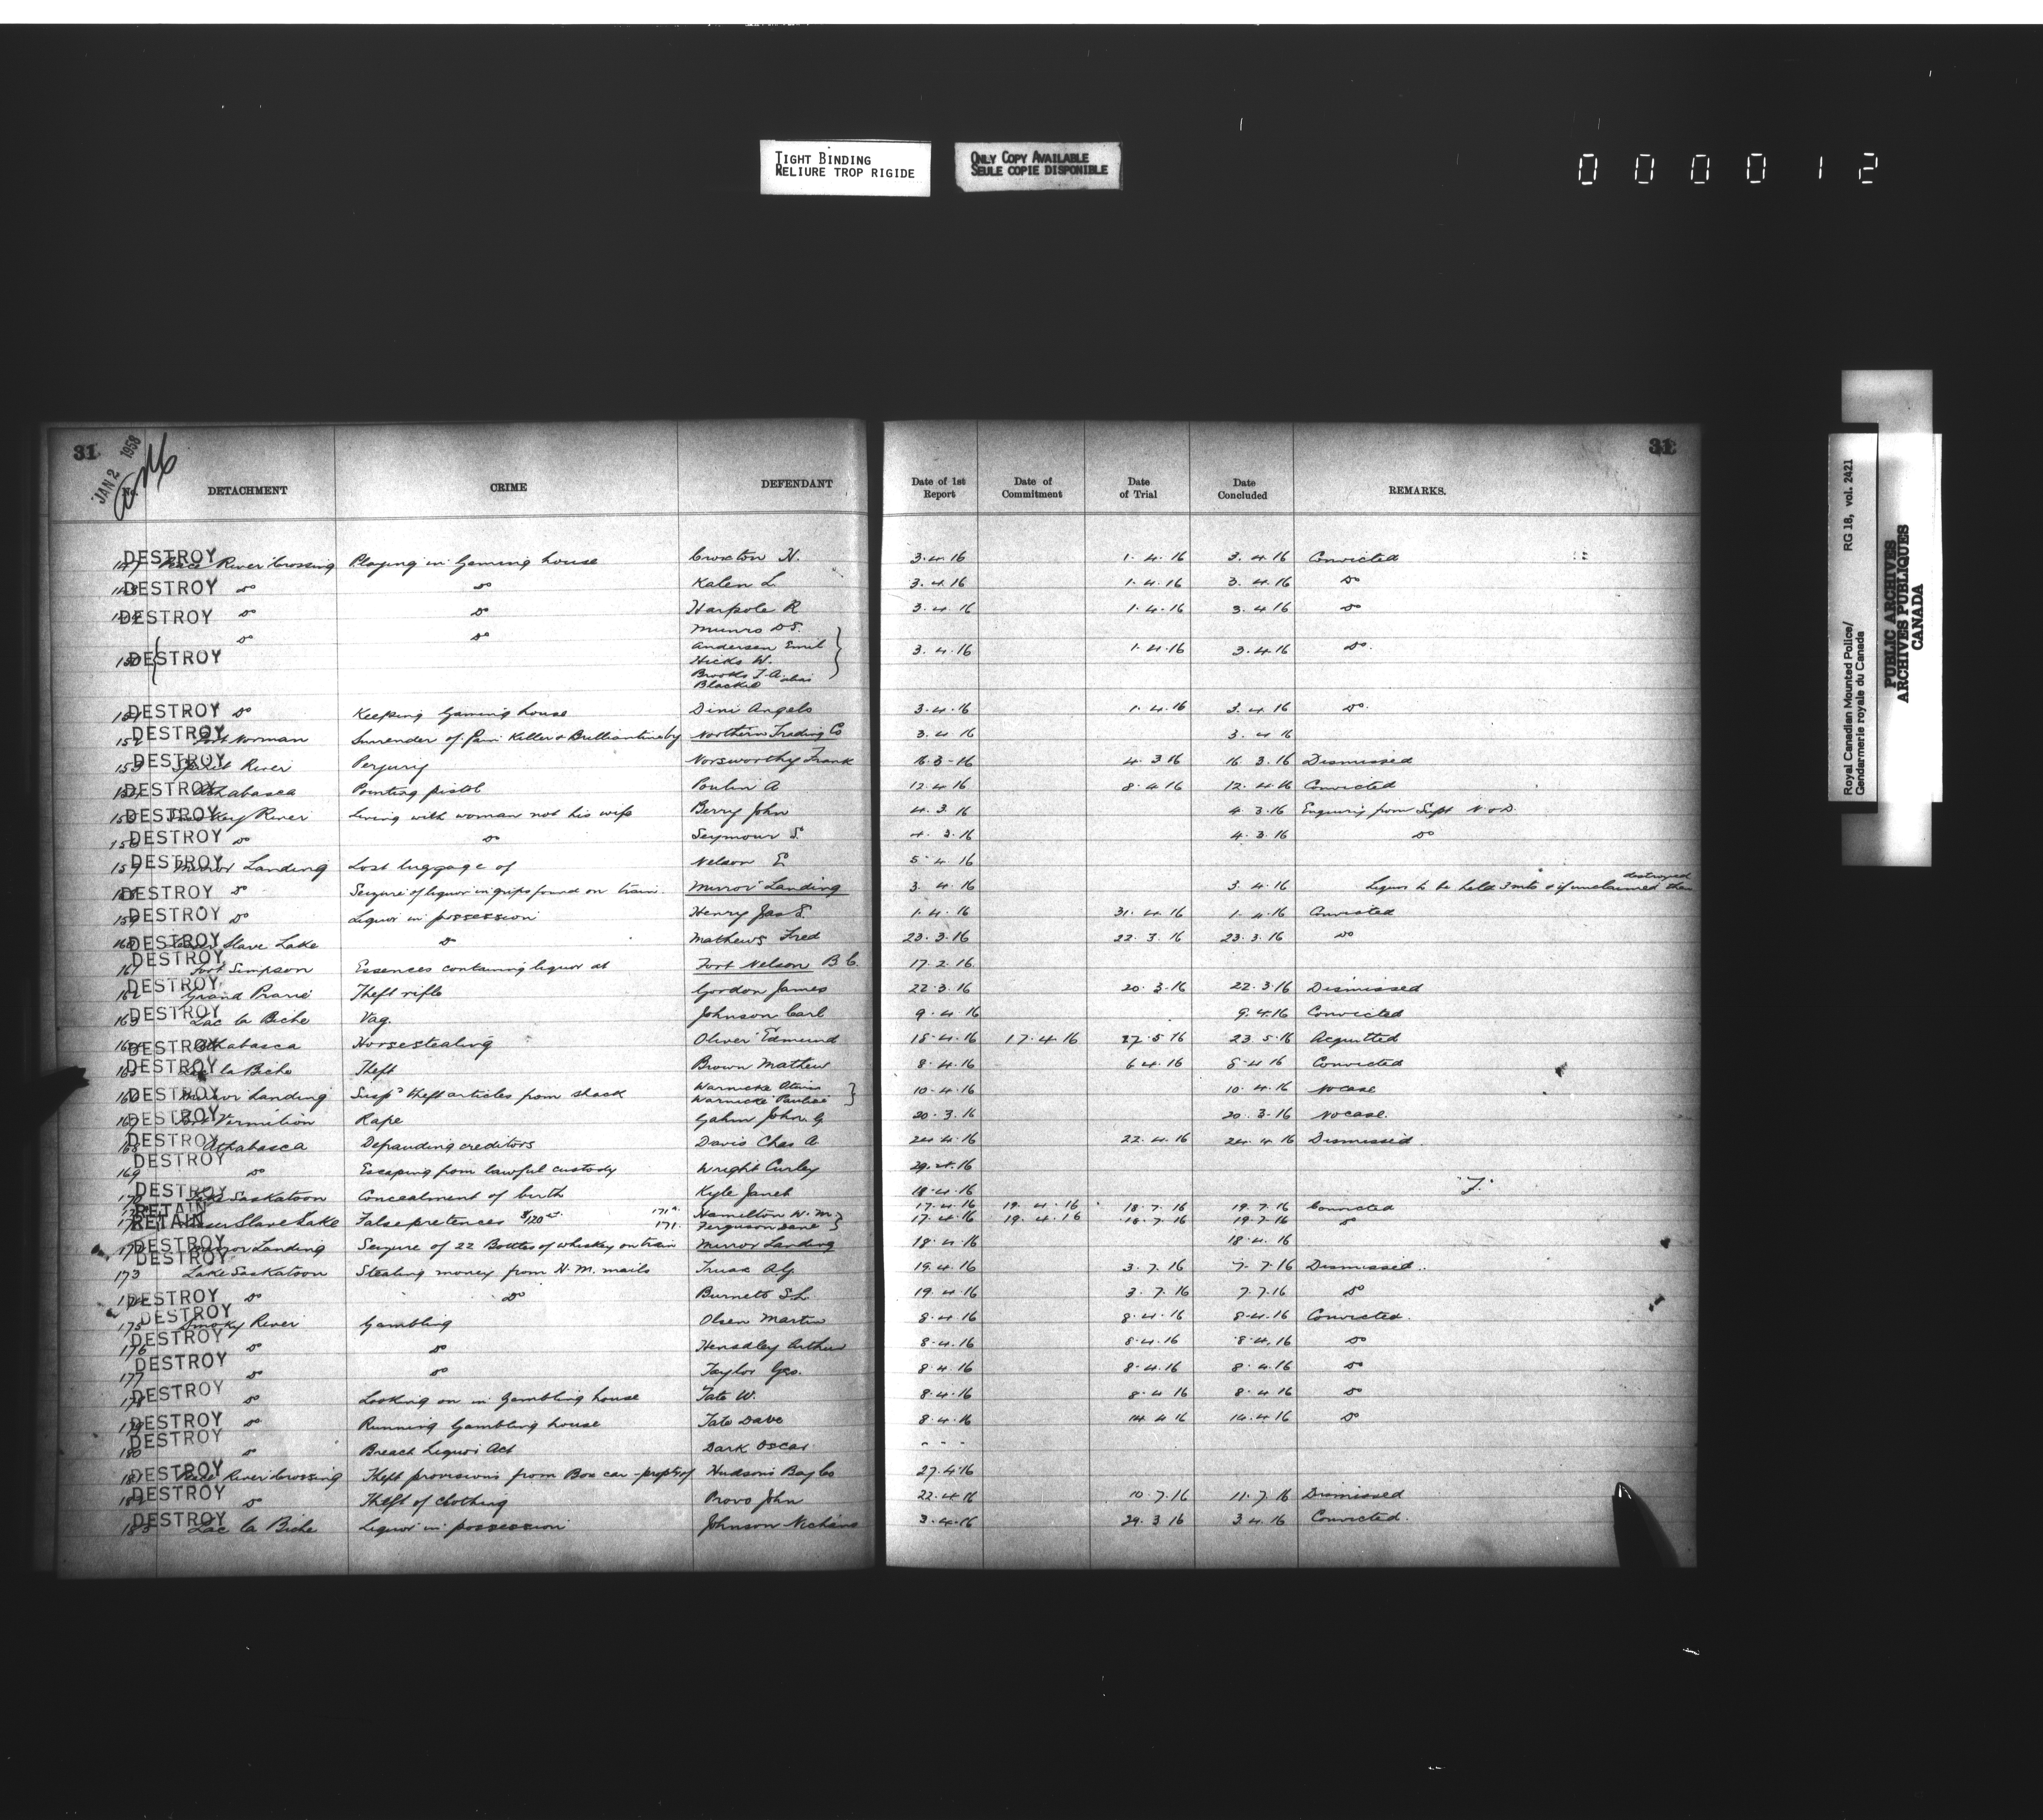 TIGHT BINDING
RELIURE TROP RIGIDE
ONLY COPY AVAILABLE
SEULE COPIE DISPONIBLE
0 0 0 0 1 2
Royal Canadian Mounted Police/ RG 18, vol. 2421
Gendarmerie royale du Canada
PUBLIC ARCHIVES
ARCHIVES PUBLIQUES
CANADA
31 JAN 2 1958 31
No. DETACHMENT CRIME DEFENDANT Date of 1st Report Date of Commitment Date of Trial Date Concluded REMARKS.
147 DESTROY River Crossing Playing in Gaming house Croxton H. 3.4.16 1.4.16 3.4.16 Convicted
148 DESTROY do do Kalen L 3.4.16 1.4.16 3.4.16 do
DESTROY do do Harpole R 3.4.16 1.4.16 3.4.16 do
do do Munro D S.
150 DESTROY Andersen Emil 3.4.16 1.4.16 3.4.16 do.
Hicks W.
Brooks T. A. alias
Blackie
151 DESTROY do Keeping Gaming house Dini Angelo 3.4.16 1.4.16 3.4.16 do.
152 DESTROY Fort Norman Surrender of Pain Killer & Brilliantine by Northern Trading Co 3.4.16 3.4.16
153 DESTROY Spirit River Perjury Norsworthy Frank 16.3.16 4.3.16 16.3.16 Dismissed
154 DESTROY Athabasca Pointing pistol Poulin A 12.4.16 8.4.16 12.4.16 Convicted
155 DESTROY River Living with woman not his wife Berry John 4.3.16 4.3.16 Enquiry from Supt N. D.
156 DESTROY do do Seymour S. 4.3.16 4.3.16 do
157 DESTROY Mirror Landing Lost luggage of Nelson E 5.4.16
158 DESTROY do Seizure of liquor in grips found on train. Mirror Landing 3.4.16 3.4.16 Liquor to be held 3 mts & if unclaimed then destroyed
159 DESTROY do Liquor in possession Henry Jas S. 1.4.16 31.4.16 1.4.16 Convicted
160 DESTROY Lesser Slave Lake do Mathews Fred 23.3.16 22.3.16 23.3.16 do
161 DESTROY Fort Simpson Essences containing liquor at Fort Nelson B.C. 17.2.16
162 DESTROY Grand Prairie Theft rifle Gordon James 22.3.16 20.3.16 22.3.16 Dismissed
163 DESTROY Lac la Biche Vag. Johnson Carl 9.4.16 9.4.16 Convicted
164 DESTROY Athabasca Horsestealing Oliver Edmund 18.4.16 17.4.16 27.5.16 23.5.16 Acquitted
165 DESTROY Lac la Biche Theft Brown Mathew 8.4.16 6.4.16 8.4.16 Convicted
166 DESTROY Mirror Landing Susp'd theft articles from shack Warnicke 10.4.16 10.4.16 No case
Warnicke Pauline
167 DESTROY Fort Vermilion Rape Gahm John G 20.3.16 20.3.16 No case.
168 DESTROY Athabasca Defrauding creditors Davis Chas A. 24.4.16 22.4.16 24.4.16 Dismissed.
169 DESTROY do Escaping from lawful custody Wright Curley 29.4.16
170 DESTROY Lake Saskatoon Concealment of birth Kyle Janet 18.4.16 F.
RETAIN 171a. Hamilton W. M. 17.4.16 19.4.16 18.7.16 19.7.16 Convicted
RETAIN Lesser Slave Lake False pretences $120 171. Ferguson Dane 17.4.16 19.4.16 18.7.16 19.7.16 do
172 DESTROY Mirror Landing Seizure of 22 Bottles of whiskey on train Mirror Landing 18.4.16 18.4.16
173 DESTROY Lake Saskatoon Stealing money from H.M. mails Truax A.G. 19.4.16 3.7.16 7.7.16 Dismissed.
174 DESTROY do do Burnett S.L. 19.4.16 3.7.16 7.7.16 do
175 DESTROY Smoky River Gambling Olsen Martin 8.4.16 8.4.16 8.4.16 Convicted.
176 DESTROY do do Hensdley Arthur 8.4.16 8.4.16 8.4.16 do
177 DESTROY do do Taylor Geo. 8.4.16 8.4.16 8.4.16 do
178 DESTROY do Looking on in Gambling house Tate W. 8.4.16 8.4.16 8.4.16 do
179 DESTROY do Running Gambling house Tate Dave 8.4.16 14.4.16 14.4.16 do
180 DESTROY do Breach Liquor Act Dark Oscar - - -
181 DESTROY River Crossing Theft provisions from Box car - prop'ty of Hudsons Bay Co 27.4.16
182 DESTROY do Theft of clothing Provo John 22.4.16 10.7.16 11.7.16 Dismissed
183 DESTROY Lac la Biche Liquor in possession Johnson 3.4.16 29.3.16 3.4.16 Convicted.